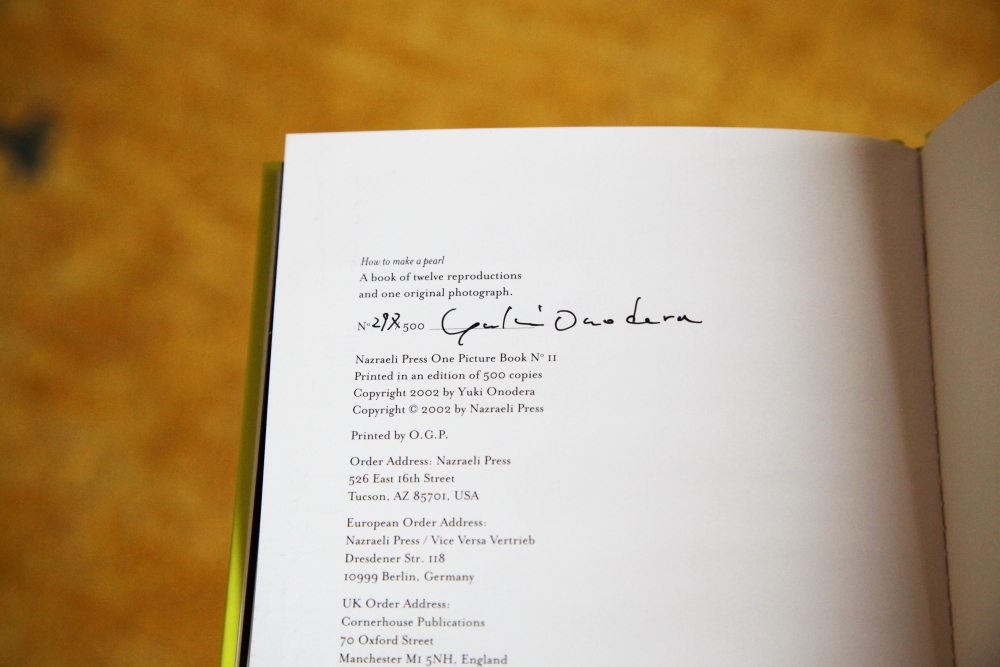 How to make a pearl
A book of twelve reproductions
and one original photograph.
Nº 500 Yuki Onodera
Nazraeli Press One Picture Book Nº 11
Printed in an edition of 500 copies
Copyright 2002 by Yuki Onodera
Copyright © 2002 by Nazraeli Press
Printed by O.G.P.
Order Address: Nazraeli Press
526 East 16th Street
Tucson, AZ 85701, USA
European Order Address:
Nazraeli Press / Vice Versa Vertrieb
Dresdener Str. 118
10999 Berlin, Germany
UK Order Address:
Cornerhouse Publications
70 Oxford Street
Manchester M1 5NH, England